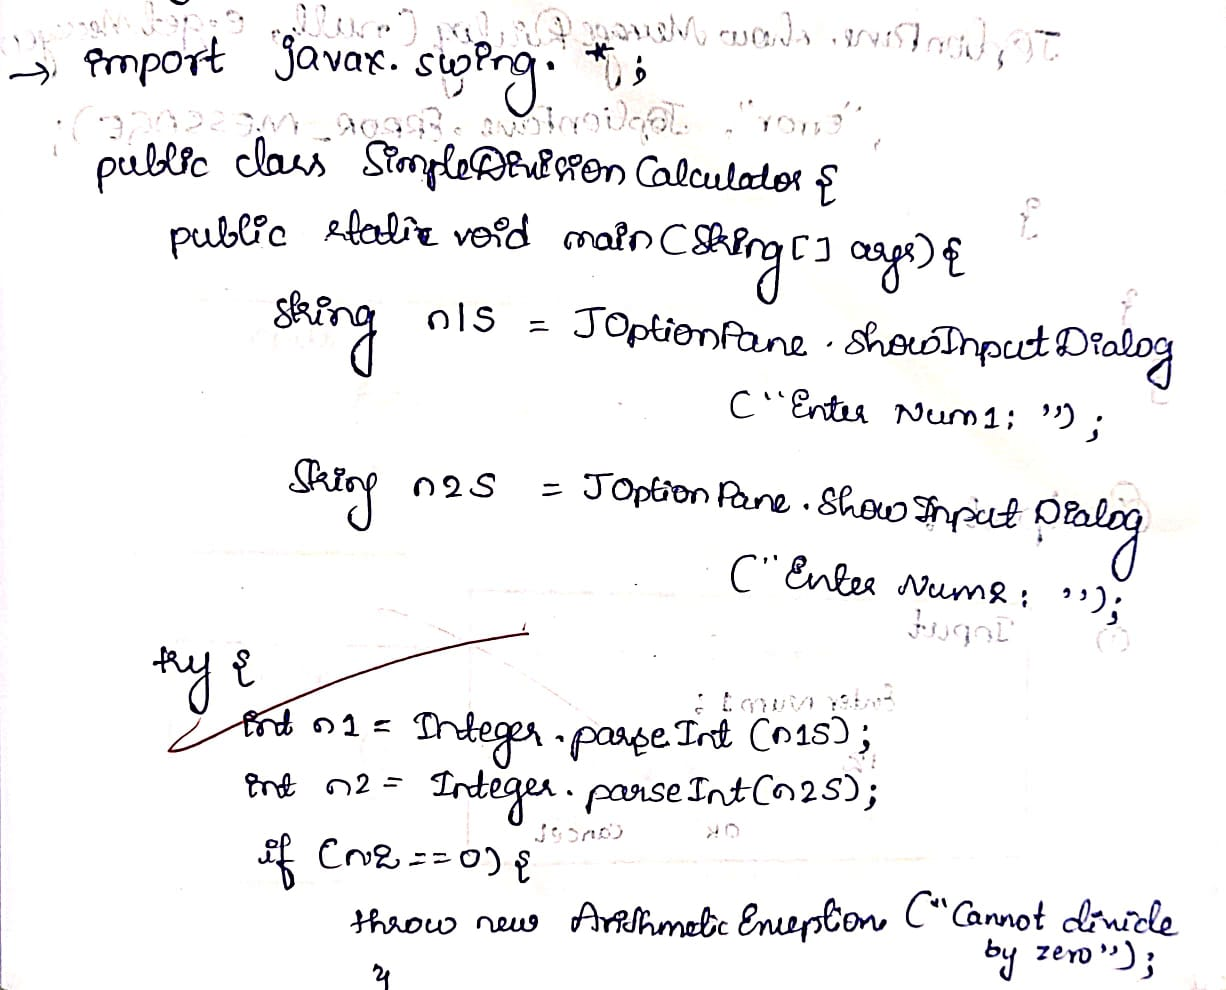 → import javax.swing.*;
public class SimpleDivision Calculator {
public static void main (String [] args) {
String n1S = JOptionPane.showInputDialog
("Enter Num1: ");
String n2S = JOptionPane.ShowInputDialog
("Enter Num2: ");
try {
int n1 = Integer.parseInt (n1S);
int n2 = Integer.parseInt(n2S);
if (n2==0) {
throw new Arithmetic Exception ("Cannot divide
by zero");
}